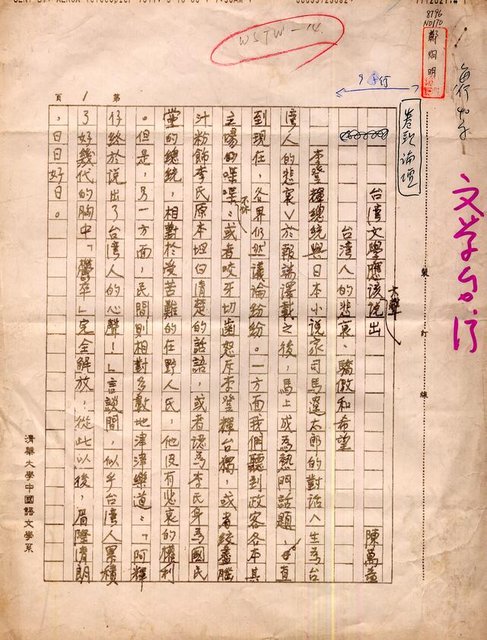 8796
N0170
鄭烱明
WSTW-14
9行
卷頭論壇
文学台
第
1
頁
裝
訂
線
台灣文學應該說出
大聲
台灣人的悲哀、驕傲和希望
陳萬益
李登輝總統與日本小說家司馬遼太郎的對話〈生為台
灣人的悲哀〉於報端譯載之後，馬上成為熱門話題，直
到現在，各界仍然議論紛紛。一方面我們聽到政客各本其
立場的喋喋不休，或者咬牙切齒怒斥李登輝台獨，或者絞盡腦
汁粉飾李氏原本坦白清楚的話語，或者認為李氏身為國民
黨的總統，相對於受苦難的在野人民，他沒有悲哀的權利
。但是，另一方面，民間則相對多數地津津樂道：「阿輝
仔終於說出了台灣人的心聲！」言談間，似乎台灣人累積
了好幾代的胸中「鬱卒」完全解放，從此以後，眉隆清朗
，日日好日。
清華大學中國語文學系